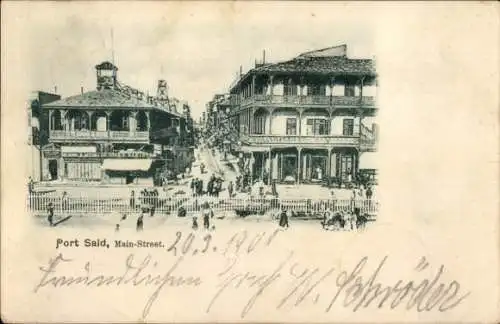 Port Said, Main-Street.
20.3.1901
Freundlichen Gruß W. Schröder